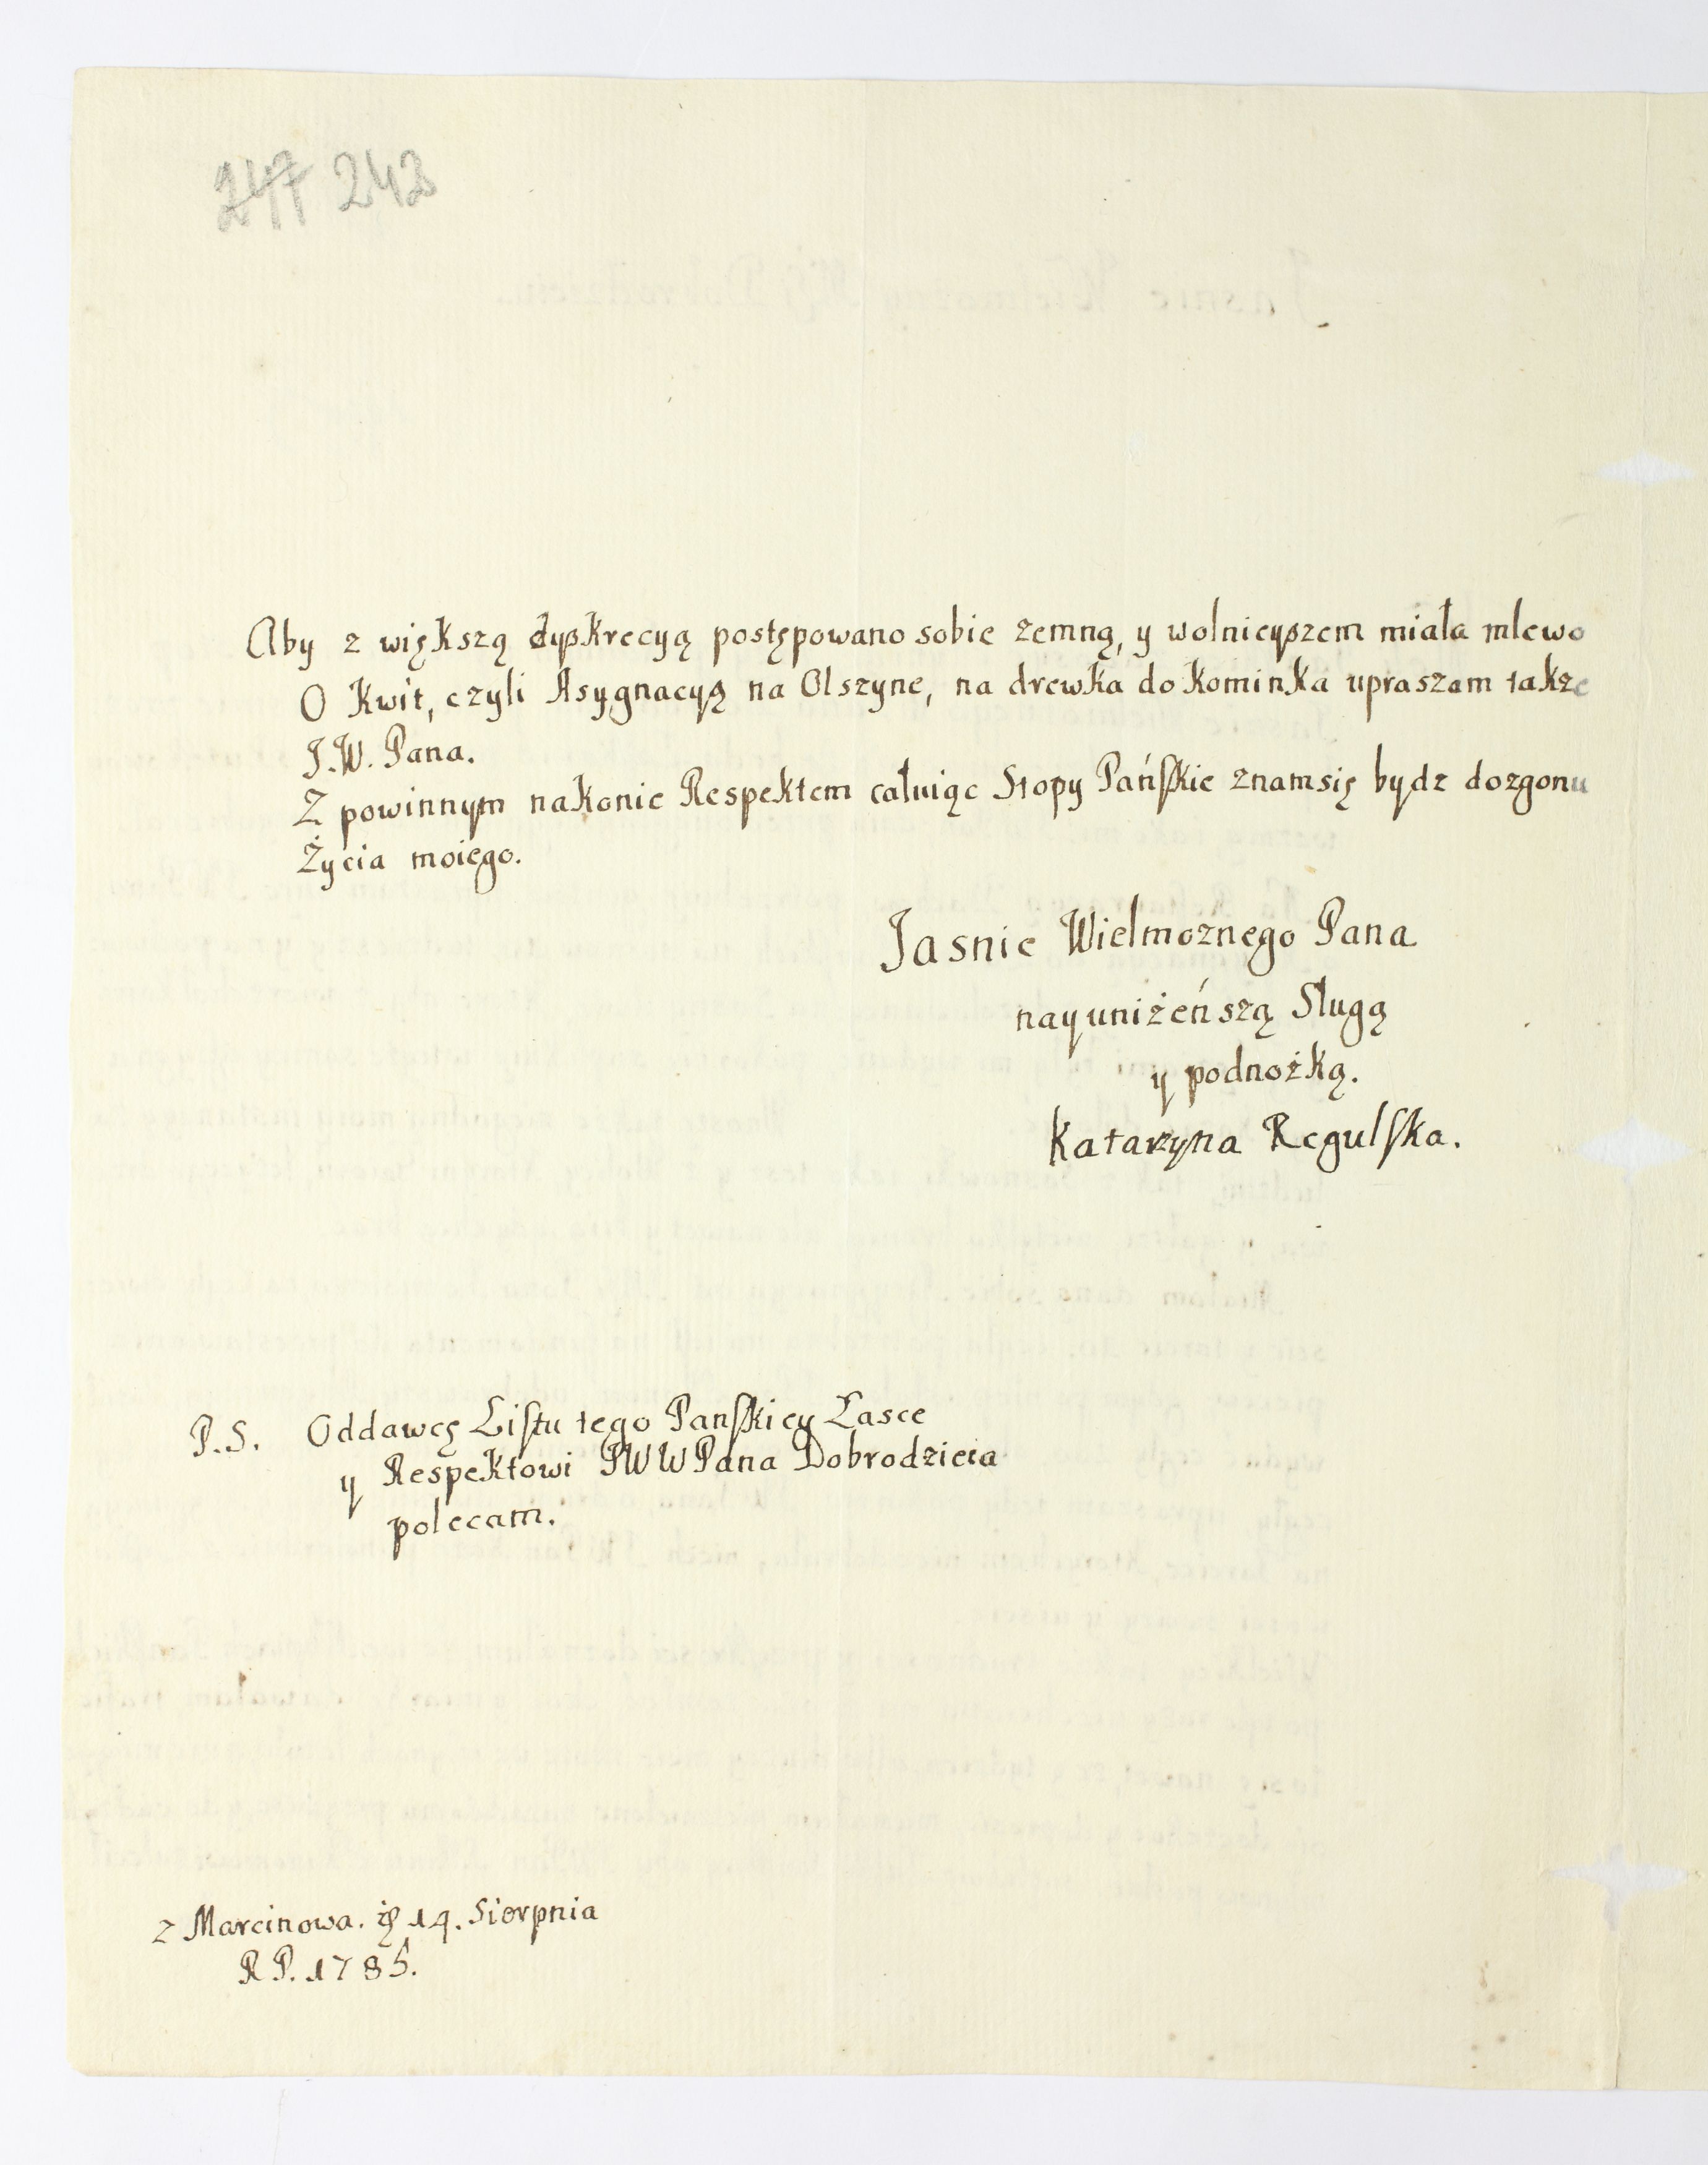 247 242
Aby z większą dyskrecyą postępowano sobie zemną, y wolnieyszem miała mlewo
O Kwit, czyli Asygnacyą na Olszyne, na drewka do kominka upraszam także
J.W. Pana.
Z powinnym nakonie Respektem całuiąc Stopy Pańskie znam się bydz dozgonu
Życia moiego.
Jasnie Wielmoznego Pana
nayuniżeńszą Sługą
y podnożką.
Katarzyna Regulska.
P.S. Oddawcę Listu tego Panskiey Łasce
y Respektowi JWWPana Dobrodzieia
polecam.
z Marcinowa. 14. Sierpnia
R P. 1785.